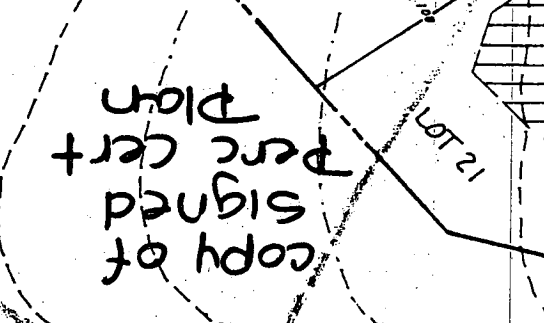 copy of
signed
Perc cert
Plan
LOT 21
100'